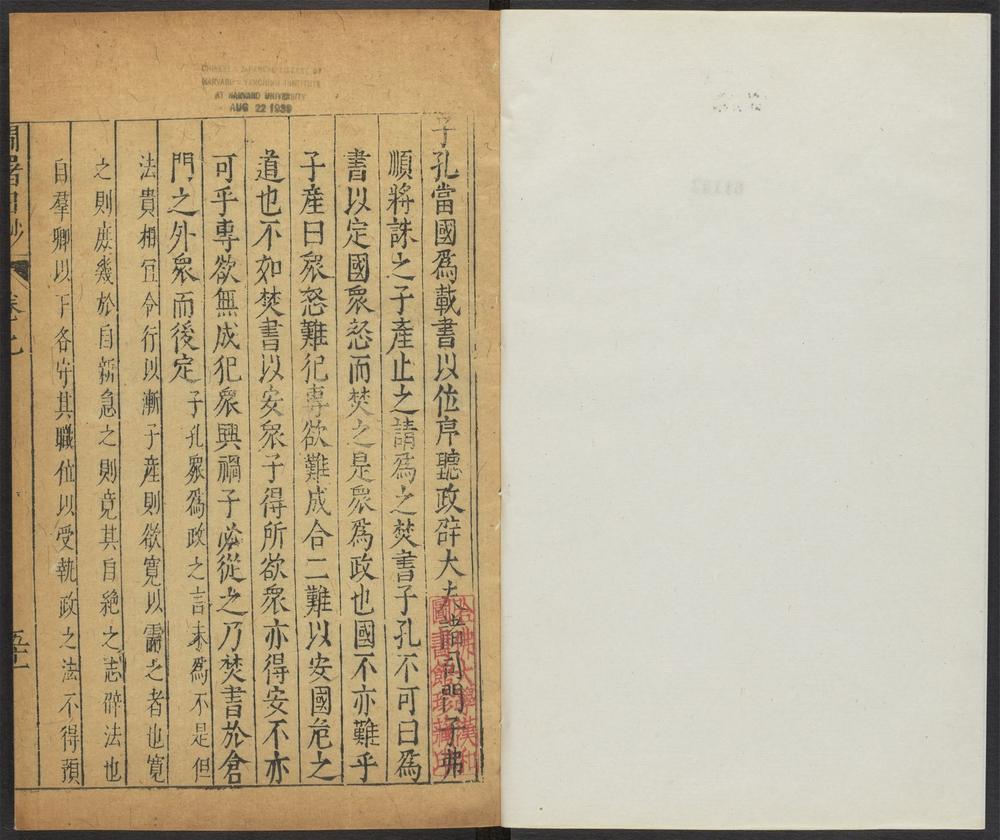 CHINESE - JAPANESE LIBRARY OF
HARVARD - YENCHING INSTITUTE
AT HARVARD UNIVERSITY
AUG 22 1939
子孔當國爲載書以位序聽政辟大夫諸司門子弗
順將誅之子產止之請爲之焚書子孔不可曰爲
書以定國衆怒而焚之是衆爲政也國不亦難乎
子產曰衆怒難犯專欲難成合二難以安國危之
道也不如焚書以安衆子得所欲衆亦得安不亦
可乎專欲無成犯衆興禍子必從之乃焚書於倉
門之外衆而後定子孔衆爲政之言未爲不是但
法貴相宜令行以漸子產則欲寬以需之者也寬
之則庶幾於自新急之則竟其自絕之志辟法也
自羣卿以下各守其職位以受執政之法不得預
卷之七
五十一
哈佛大學漢和
圖書館珍藏印